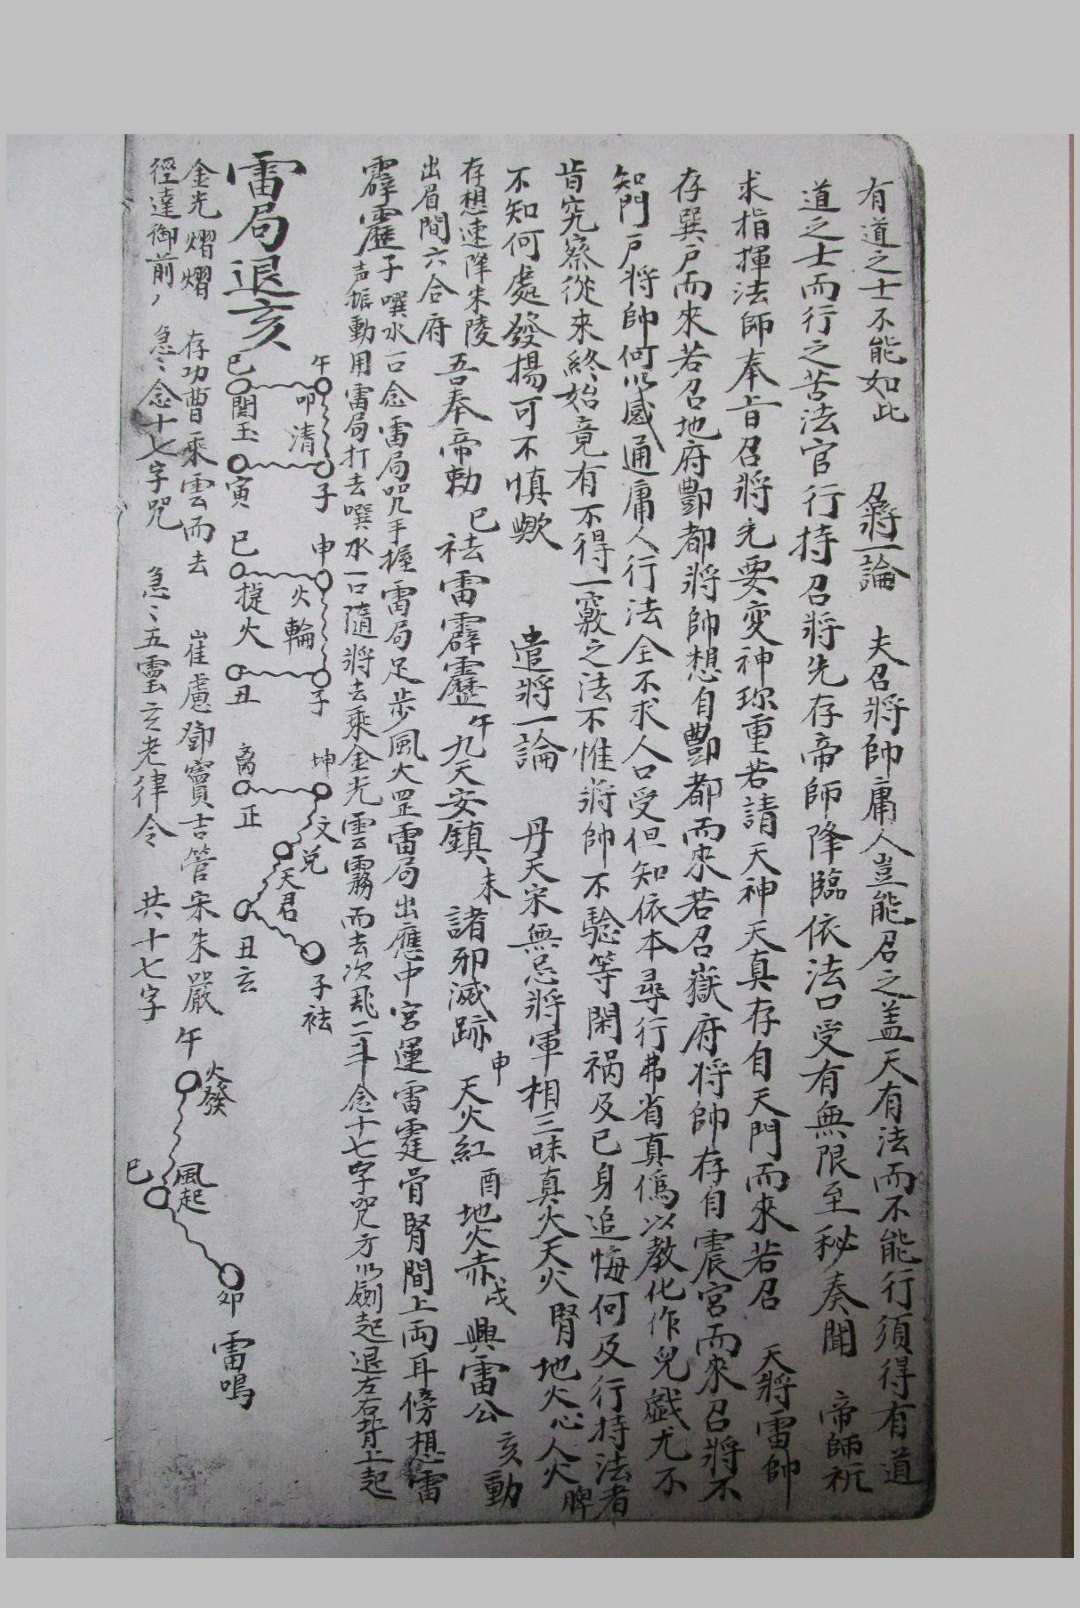 有道之士不能如此　召將一論　夫召將帥庸人豈能召之蓋天有法而不能行須得有道
道之士而行之苦法官行持召將先存帝師降臨依法口受有無限至秘奏聞　帝師祈
求指揮法師奉旨召將先要變神珎重若請天神天真存自天門而來若召　天將雷帥
存巽戶而來若召地府酆都將帥想自酆都而來若召嶽府將帥存自震宮而來召將不
知門戶將帥何以感通庸人行法全不求人口受但知依本尋行弗省真僞以教化作兒戲尤不
肯究察從來終始竟有不得一竅之法不惟將帥不驗等閑禍及已身追悔何及行持法者
不知何處發揚可不慎歟　遣將一論　丹天宋無忌將軍相三昧真火天火腎地火心人火脾
存想速降朱陵
出眉間六合府　吾奉帝勅　巳祛雷霹靂午九天安鎮未諸邪滅跡申天火紅酉地火赤戌興雷公亥動
霹靂子噀水一口念雷局咒手握雷局足步風火罡雷局出應中宮運雷霆骨腎間上両耳傍想雷
声振動用雷局打去噀水一口隨將去乘金光雲霧而去次飛二斗念十七字咒方以劍起退左右背上起
雷局退亥
午　叩清　子　申　火輪　子　坤　文　兌　天君　子祛
巳　関玉　寅　巳　提火　丑　离　正　丑亥
金光熠熠　存功曹乘雲而去　崔盧鄧竇吉管宋朱嚴　午　火發
徑達御前　急〻念十七字咒　急〻五雷玄老律令　共十七字　巳　風起　卯　雷鳴